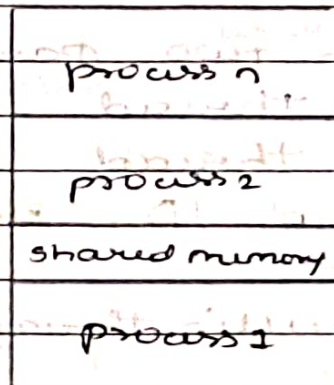 process n
process 2
shared memory
process 1